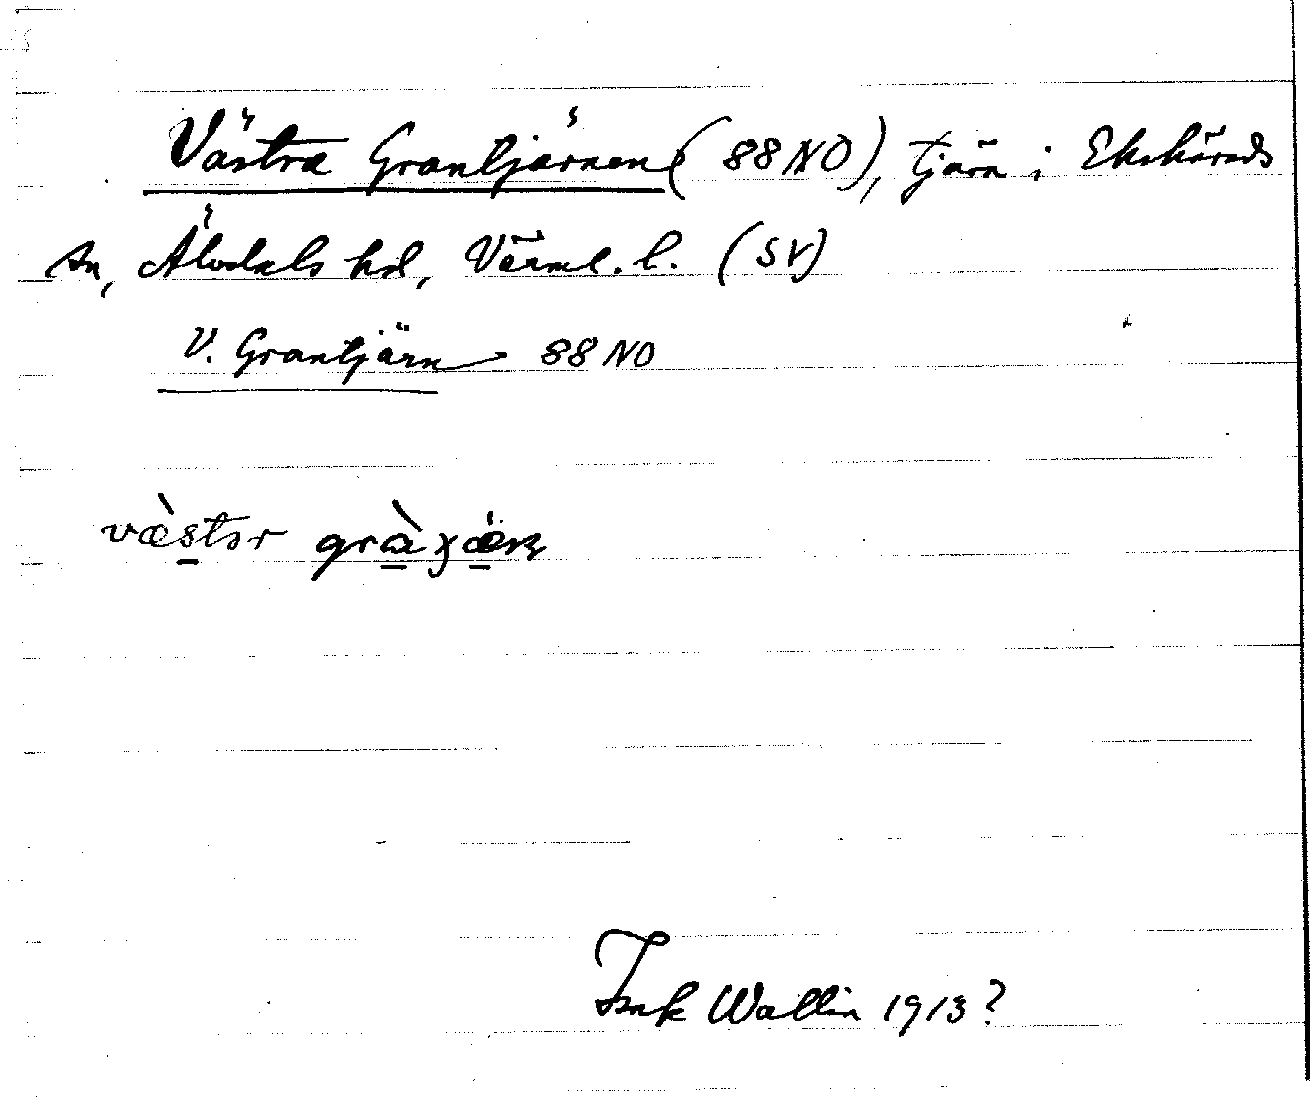 Västra Grantjärnen (88 NO), tjärn i Ekshärads
sn, Älvdals hd, Värml. l. (SV)
V. Grantjärn 88 NO
væ̀stər
Wallin 1913?